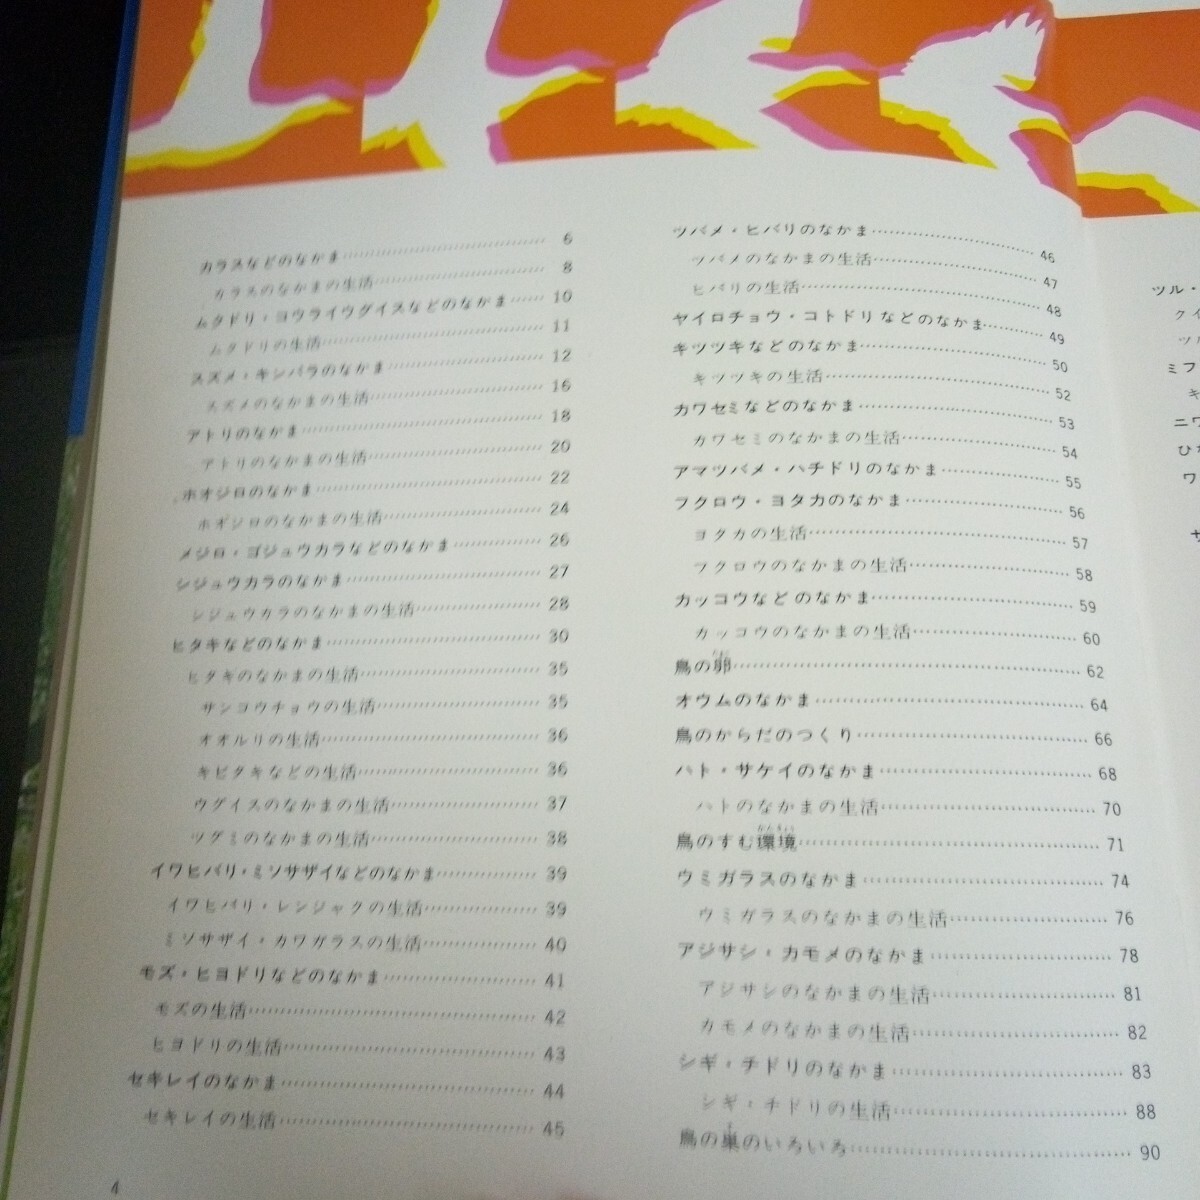 カラスなどのなかま……………………6
カラスのなかまの生活……………………8
ムクドリ・コウライウグイスなどのなかま……10
ムクドリの生活……………………11
スズメ・キンパラのなかま……………………12
スズメのなかまの生活……………………16
アトリのなかま……………………18
アトリのなかまの生活……………………20
ホオジロのなかま……………………22
ホオジロのなかまの生活……………………24
メジロ・ゴジュウカラなどのなかま…………26
シジュウカラのなかま……………………27
シジュウカラのなかまの生活………………28
ヒタキなどのなかま……………………30
ヒタキのなかまの生活……………………35
サンコウチョウの生活……………………35
オオルリの生活……………………36
キビタキなどの生活……………………36
ウグイスのなかまの生活……………………37
ツグミのなかまの生活……………………38
イワヒバリ・ミソサザイなどのなかま…………39
イワヒバリ・レンジャクの生活………………39
ミソサザイ・カワガラスの生活………………40
モズ・ヒヨドリなどのなかま…………………41
モズの生活……………………42
ヒヨドリの生活……………………43
セキレイのなかま……………………44
セキレイの生活……………………45
4
ツバメ・ヒバリのなかま……………………46
ツバメのなかまの生活……………………47
ヒバリの生活……………………48
ヤイロチョウ・コトドリなどのなかま…………49
キツツキなどのなかま……………………50
キツツキの生活……………………52
カワセミなどのなかま……………………53
カワセミのなかまの生活……………………54
アマツバメ・ハチドリのなかま………………55
フクロウ・ヨタカのなかま……………………56
ヨタカの生活……………………57
フクロウのなかまの生活……………………58
カッコウなどのなかま……………………59
カッコウのなかまの生活……………………60
鳥の卵……………………62
オウムのなかま……………………64
鳥のからだのつくり……………………66
ハト・サケイのなかま……………………68
ハトのなかまの生活……………………70
かんきょう
鳥のすむ環境……………………71
ウミガラスのなかま……………………74
ウミガラスのなかまの生活…………………76
アジサシ・カモメのなかま…………………78
アジサシのなかまの生活……………………81
カモメのなかまの生活……………………82
シギ・チドリのなかま……………………83
シギ・チドリの生活……………………88
鳥の巣のいろいろ……………………90
ツル・
クイ
ツル
ミフ
キ
ニワ
ひな
ワ
サ